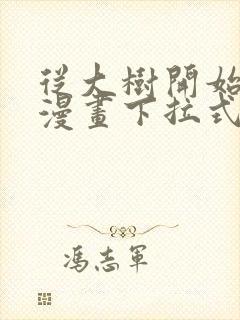 從大樹開始
漫畫下拉式
馮志軍